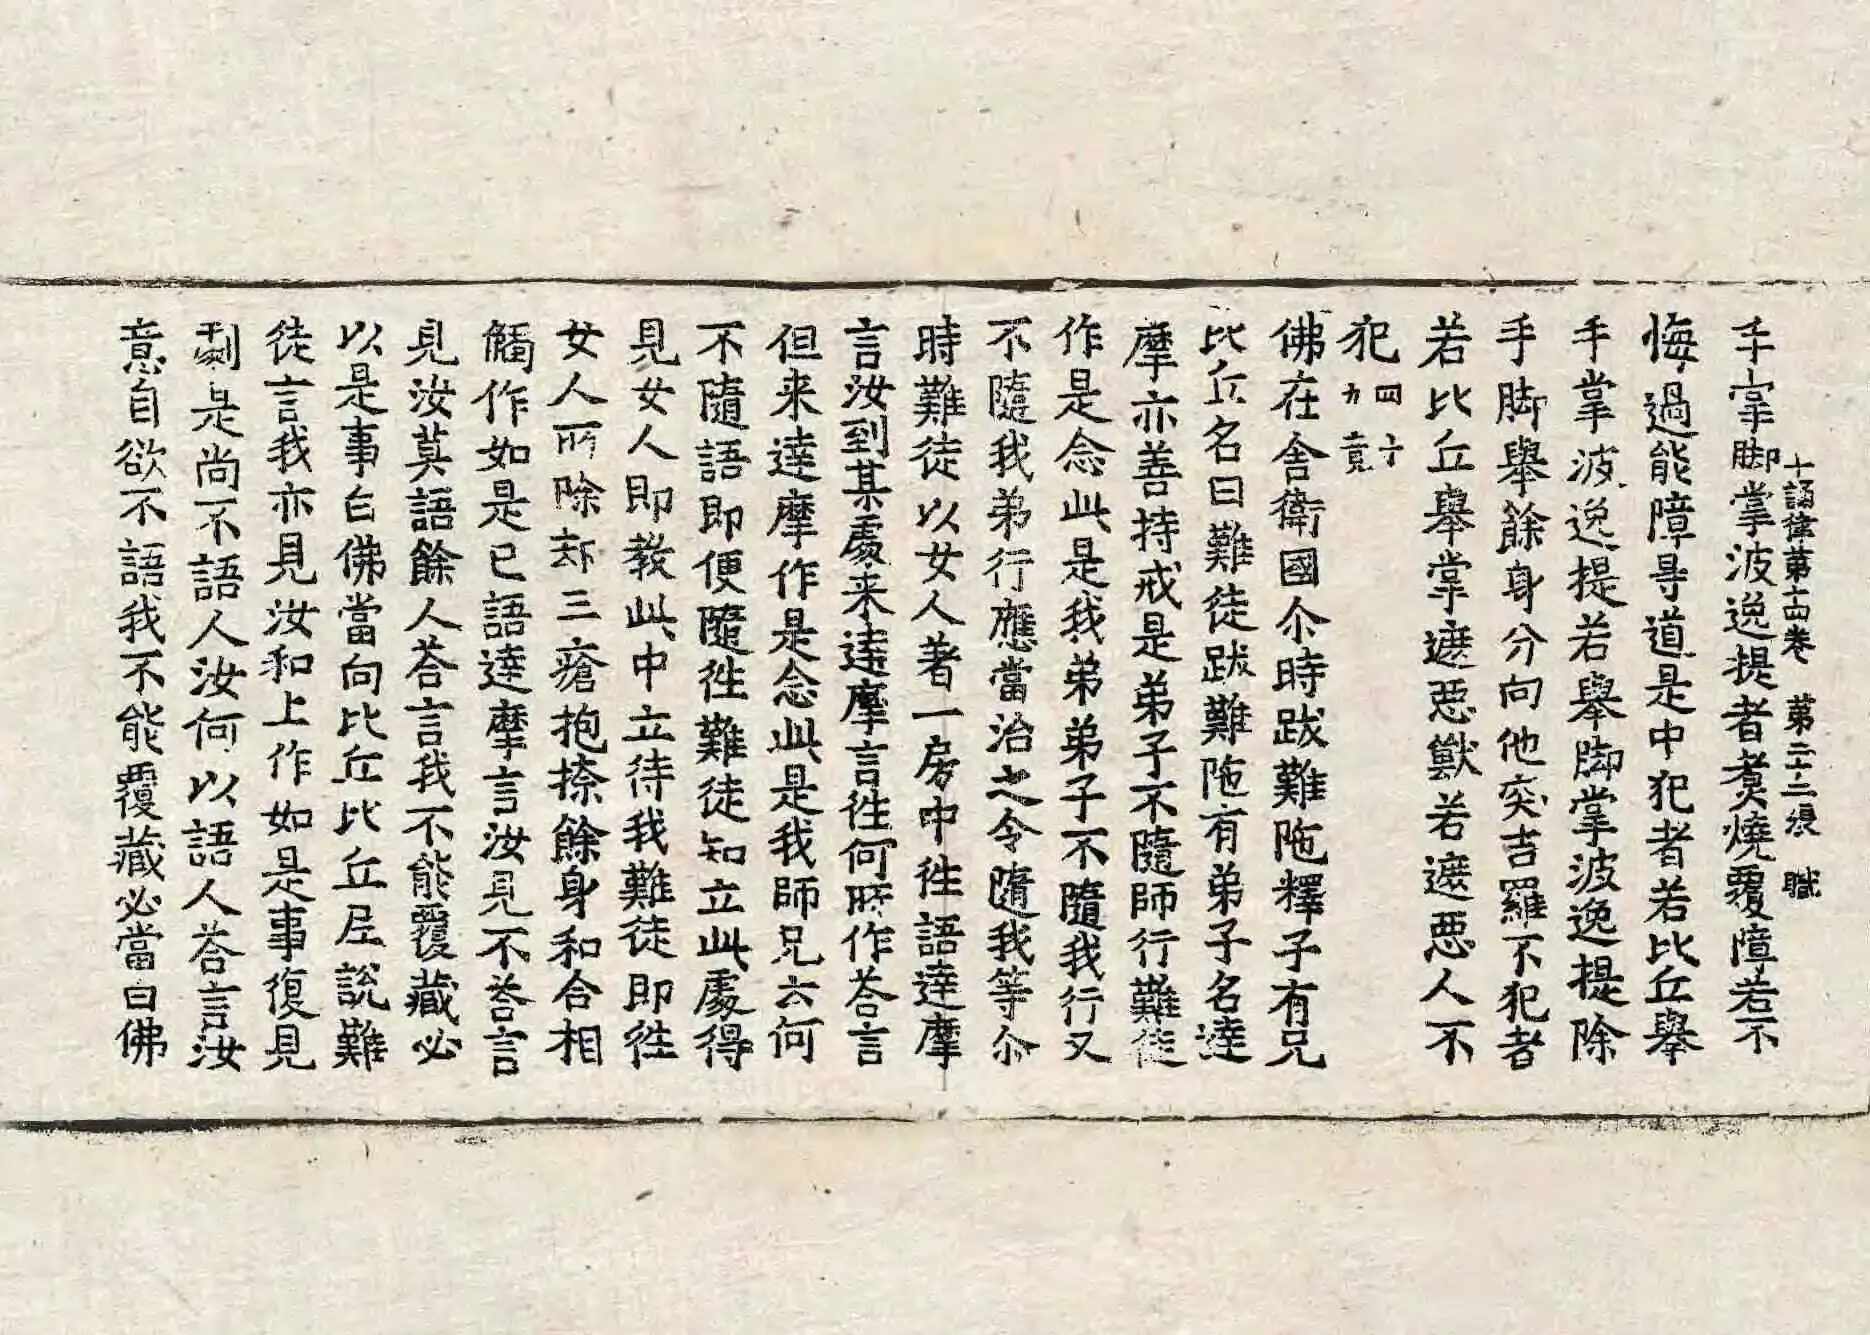 十誦律第十四卷　第二十三張　職
手掌脚掌波逸提者煑燒覆障若不
悔過能障㝵道是中犯者若比丘舉
手掌波逸提若舉脚掌波逸提除
手脚舉餘身分向他突吉羅不犯者
若比丘舉掌遮惡獸若遮惡人不
犯四十九竟
佛在舍衛國尒時跋難陁釋子有兄
比丘名曰難徒跋難陁有弟子名達
摩亦善持戒是弟子不隨師行難徒
作是念此是我弟弟子不隨我行又
不隨我弟行應當治之令隨我等尒
時難徒以女人著一房中徃語達摩
言汝到某處来達摩言徃何所作荅言
但来達摩作是念此是我師兄云何
不隨語即便隨徃難徒知立此處得
見女人即教此中立待我難徒即徃
女人所除却三瘡抱捺餘身和合相
觸作如是已語達摩言汝見不荅言
見汝莫語餘人荅言我不能覆藏必
以是事白佛當向比丘比丘尼說難
徒言我亦見汝和上作如是事復見
劇是尚不語人汝何以語人荅言汝
意自欲不語我不能覆藏必當白佛